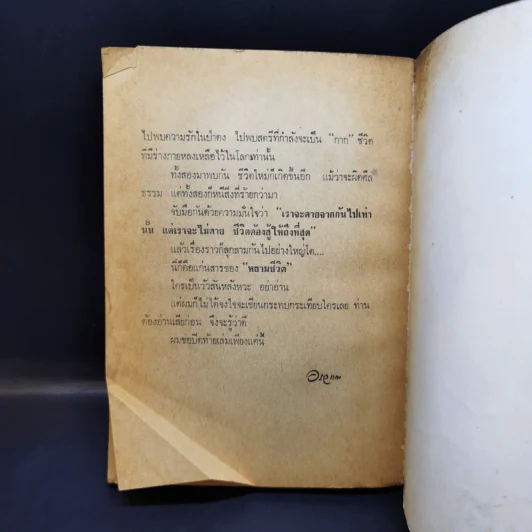 ไปพบความรักในป่าดง ไปพบสตรีที่กำลังจะเป็น "กาก" ชีวิต
ที่มีร่างกายหลงเหลือไว้ในโลกเท่านั้น
ทั้งสองมาพบกัน ชีวิตใหม่ก็เกิดขึ้นอีก แม้ว่าจะผิดศีล
ธรรม แต่ทั้งสองก็หนีสิ่งที่ร้ายกว่ามา
จับมือกันด้วยความมั่นใจว่า "เราจะตายจากกันไปเท่า
นั้น แต่เราจะไม่ตาย ชีวิตต้องสู้ให้ถึงที่สุด"
แล้วเรื่องราวก็ลุกลามกันไปอย่างใหญ่โต....
นี่ก็คือแก่นสารของ "พลามชีวิต"
ใครเป็นวัวสันหลังหวะ อย่าอ่าน
แต่ผมก็ไม่ได้จงใจจะเขียนกระทบกระเทียบใครเลย ท่าน
ต้องอ่านเสียก่อน จึงจะรู้ว่าดี
ผมขอปิดท้ายเล่มเพียงแค่นี้